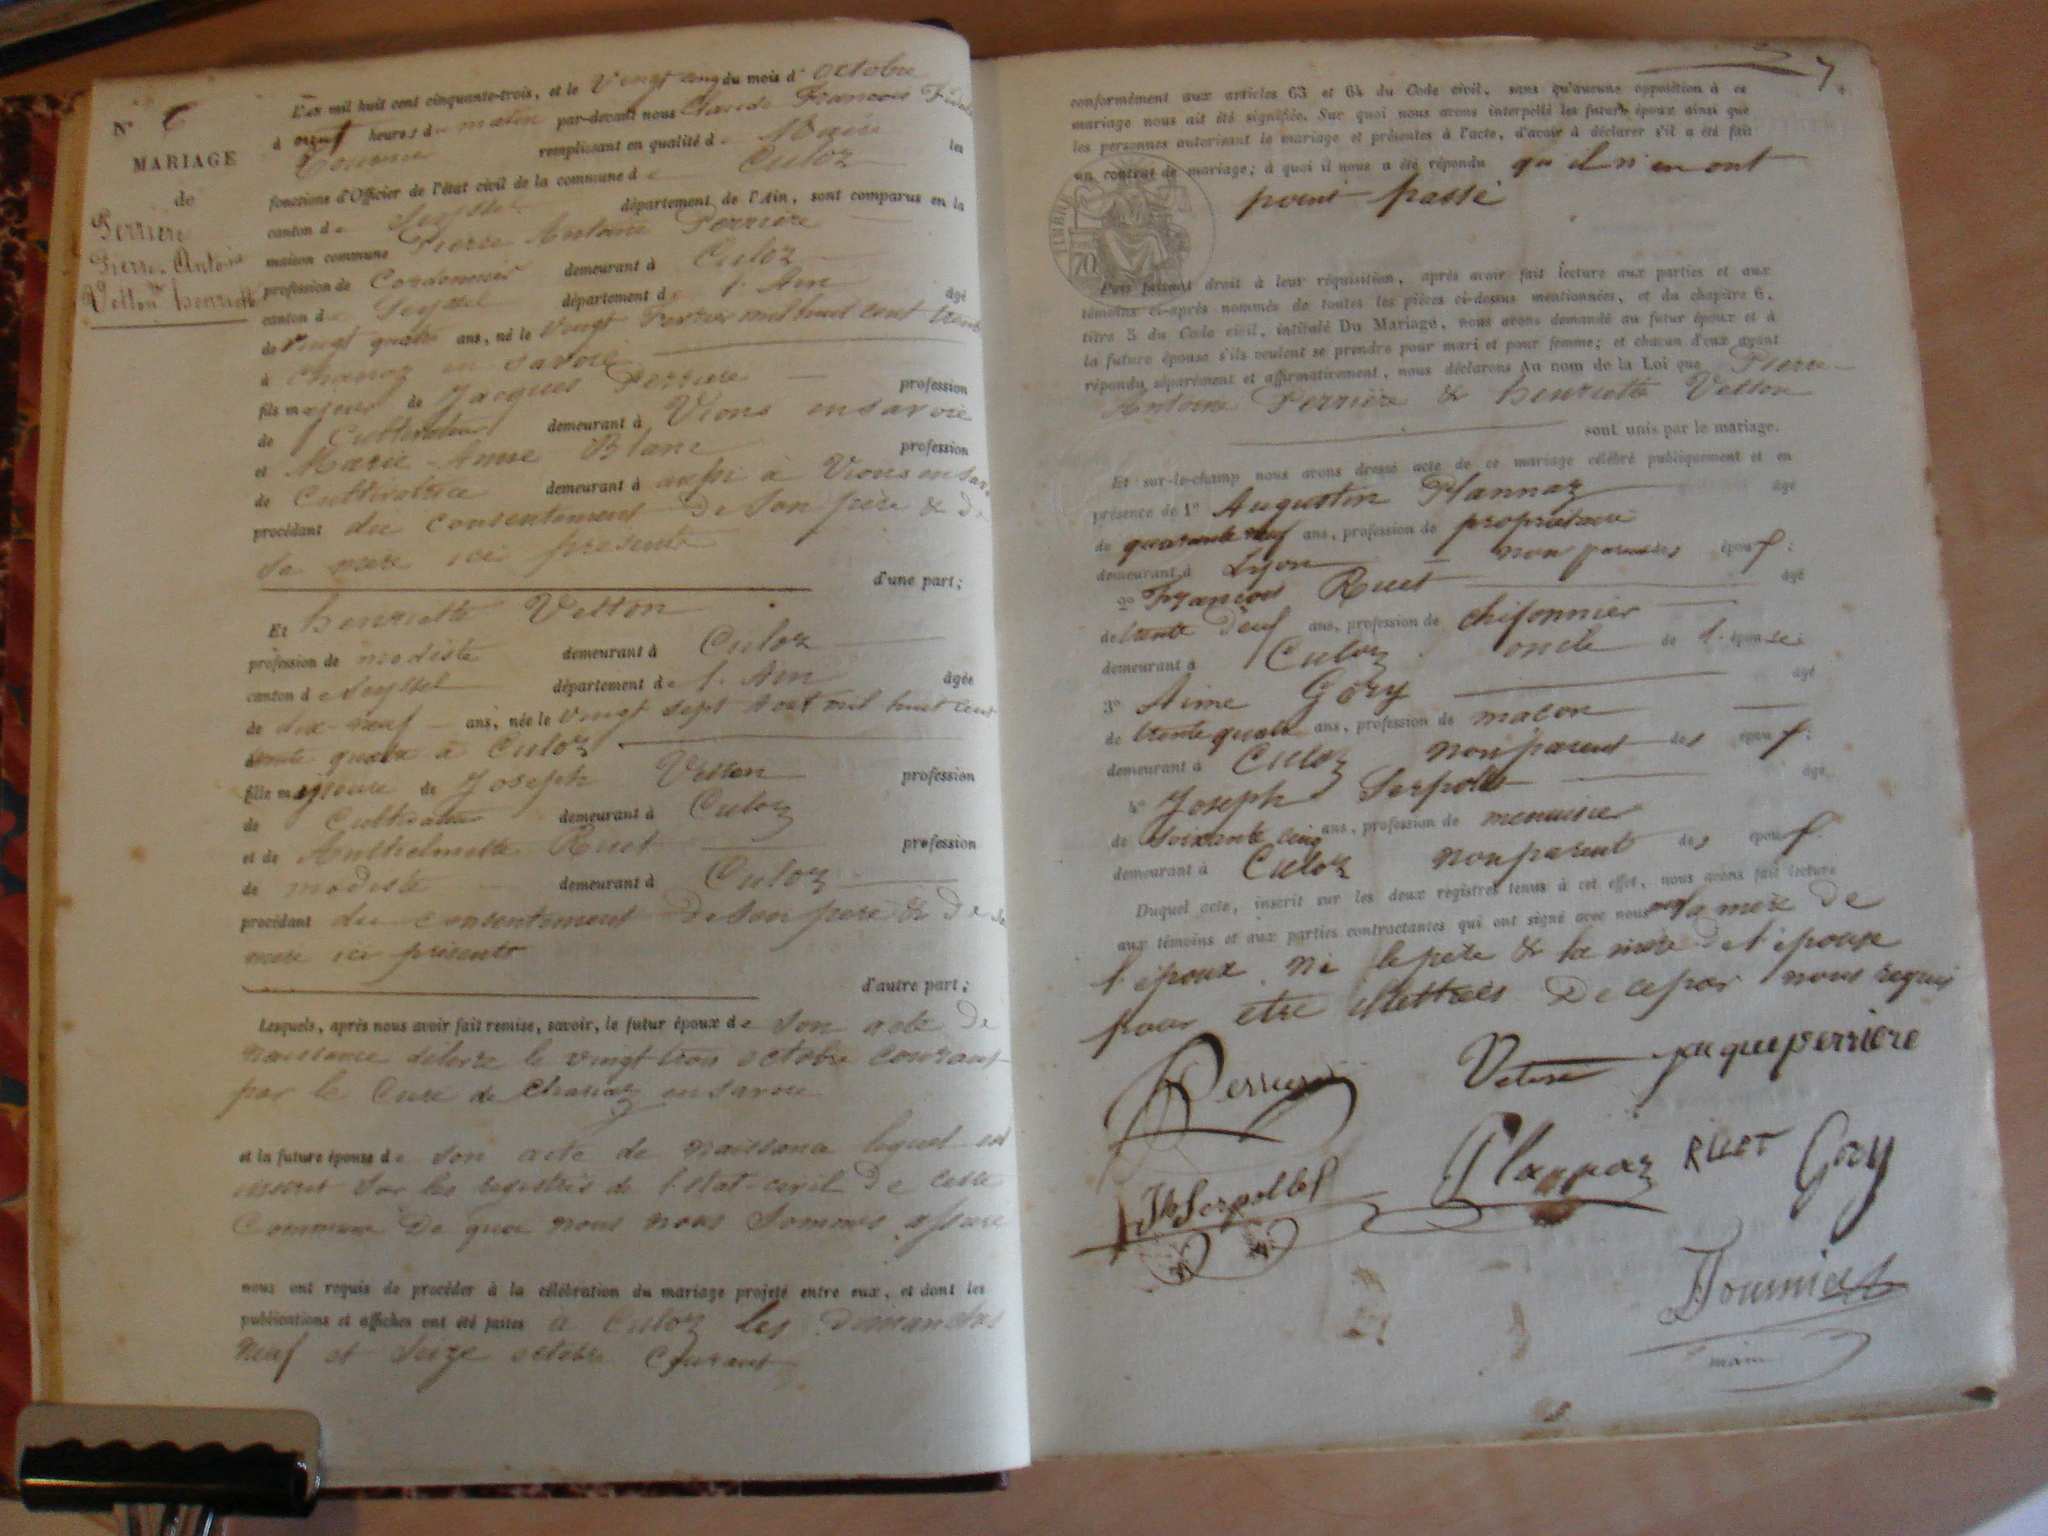 N° 6
MARIAGE
de
Perrière
Pierre Antoine
&
Vetton henriette
L'an mil huit cent cinquante-trois, et le Vingt cinq du mois d'octobre
à neuf heures du matin par-devant nous Claude François Fidele
remplissant en qualité de Maire les
fonctions d'Officier de l'état civil de la commune de Culoz
canton de Seyssel département de l'Ain, sont comparus en la
maison commune Pierre Antoine Perrière
profession de Cordonnier demeurant à Culoz
canton de Seyssel département de l'Ain âgé
de vingt quatre ans, né le vingt fevrier mil huit cent trente
à Chanaz en Savoie
fils majeur de Jacques Perriere profession
de Cultivateur demeurant à Vions en Savoie
et Marie-Anne Blanc profession
de Cultivatrice demeurant à aussi à Vions en Savoie
procédant du consentement de son père & de
sa mère ici presents
d'une part;
Et henriette Vetton
profession de modiste demeurant à Culoz
canton de Seyssel département de l'Ain âgée
de dix-neuf ans, née le vingt sept Aout mil huit cent
trente quatre à Culoz
fille majeure de Joseph Vetton profession
de Cultivateur demeurant à Culoz
et de Anthelmette Ruet profession
de modiste demeurant à Culoz
procédant du consentement de son pere & de sa
mere ici présents
d'autre part;
Lesquels, après nous avoir fait remise, savoir, le futur époux de son acte de
naissance délivré le vingt-trois octobre courant
par le Curé de Chanaz en Savoie
et la future épouse de son acte de naissance lequel est
inscrit sur les registres de l'état-civil de cette
Commune de quoi nous nous sommes assuré
nous ont requis de procéder à la célébration du mariage projeté entre eux, et dont les
publications et affiches ont été faites à Culoz les dimanches
neuf et seize octobre courant
7
conformément aux articles 63 et 64 du Code civil, sans qu'aucune opposition à ce
mariage nous ait été signifiée. Sur quoi nous avons interpellé les futurs époux ainsi que
les personnes autorisant le mariage et présentes à l'acte, d'avoir à déclarer s'il a été fait
un contrat de mariage; à quoi il nous a été répondu qu'il n'en ont
point passé
TIMBRE
70
Puis faisant droit à leur réquisition, après avoir fait lecture aux parties et aux
témoins ci-après nommés de toutes les pièces ci-dessus mentionnées, et du chapitre 6,
titre 5 du Code civil, intitulé Du Mariage, nous avons demandé au futur époux et à
la future épouse s'ils veulent se prendre pour mari et pour femme; et chacun d'eux ayant
répondu séparément et affirmativement, nous déclarons Au nom de la Loi que Pierre-
Antoine Perrière & henriette Vetton
sont unis par le mariage.
Et sur-le-champ nous avons dressé acte de ce mariage célébré publiquement et en
présence de 1° Augustin Plannaz âgé
de quarante neuf ans, profession de propriétaire
demeurant à Lyon non parent des époux;
2° François Ruet âgé
de trente neuf ans, profession de chifonnier
demeurant à Culoz oncle de l'épouse;
3° Aime Gory âgé
de trente quatre ans, profession de macon
demeurant à Culoz non parent des époux;
4° Joseph Serpollet âgé
de soixante cinq ans, profession de menuisier
demeurant à Culoz non parent des époux
Duquel acte, inscrit sur les deux registres tenus à cet effet, nous avons fait lecture
aux témoins et aux parties contractantes qui ont signé avec nous non la mere de
l'époux ni le pere & la mere de l'épouse
pour etre illettrés de ce par nous requis
Perriere Vetton jacque perriere
Jh Serpollet Plannaz RUET Gory
maire